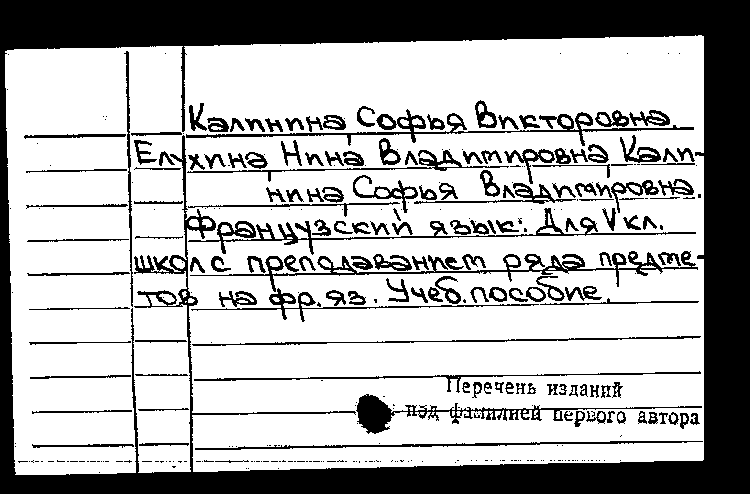 Калинина, Софья Викторовна.
Елухина, Нина Владимировна, Кали-
нина, Софья Владимировна.
Французский язык: Для V кл.
школ с преподаванием ряда предме-
тов на фр. яз. Учеб. пособие.
Перечень изданий
под фамилией первого автора